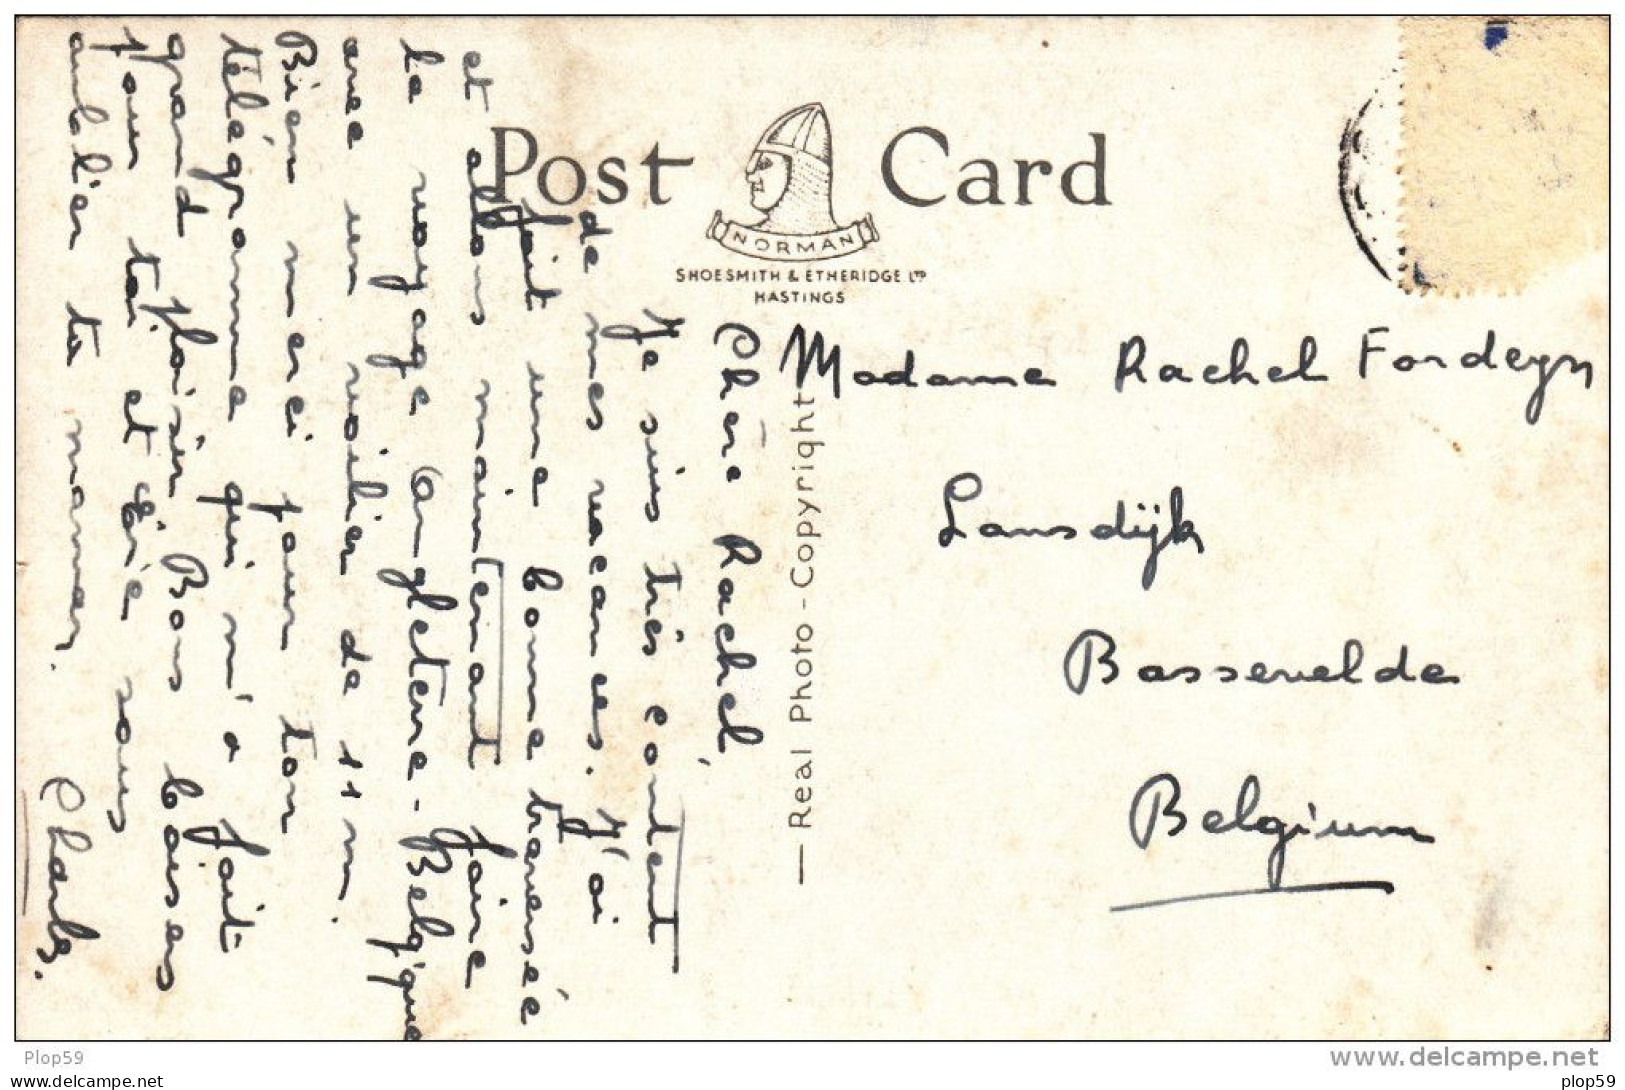 Post Card
NORMAN
SHOESMITH & ETHERIDGE LTD
HASTINGS
— Real Photo - Copyright
Chère Rachel
Je suis très content
de mes vacances. J'ai
fait une bonne traversée
et allons maintenant faire
le voyage Angleterre - Belgique
avec un voilier de 11 m.
Bien merci pour ton
télégramme qui m'a fait
grand plaisir Bons baises
pour toi et sans
oublier ta maman.
Charles.
Madame Rachel Fordeyn
Lansdijk
Bassevelde
Belgium
Plop59
www.delcampe.net
www.delcampe.net
plop59